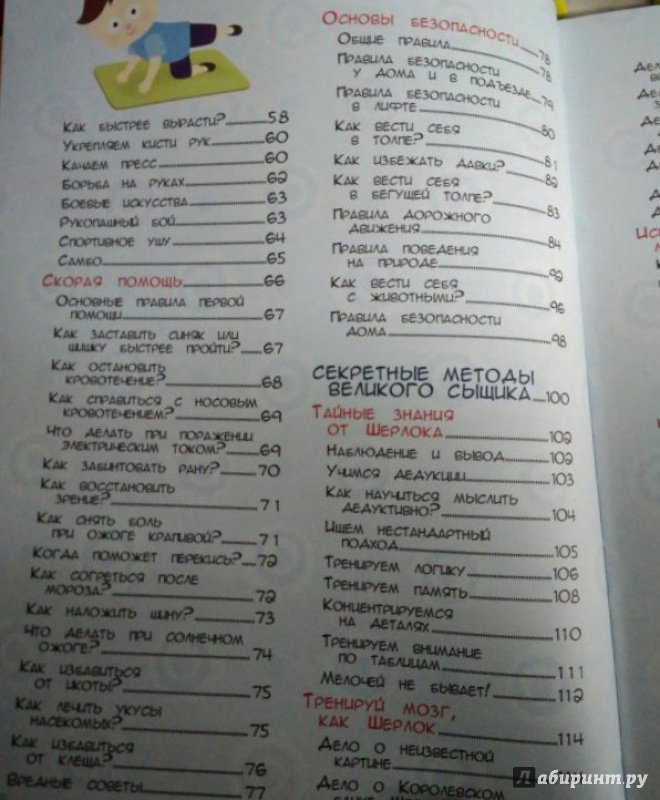 Как быстрее вырасти? 58
Укрепляем кисти рук 60
Качаем пресс 60
Борьба на руках 62
Боевые искусства 63
Рукопашный бой 63
Спортивное ушу 64
Самбо 65
Скорая помощь 66
Основные правила первой
помощи 67
Как заставить синяк или
шишку быстрее пройти? 67
Как остановить
кровотечение? 68
Как справиться с носовым
кровотечением? 69
Что делать при поражении
электрическим током? 69
Как забинтовать рану? 70
Как восстановить
зрение? 71
Как снять боль
при ожоге крапивой? 71
Когда поможет перекись? 72
Как согреться после
мороза? 72
Как наложить шину? 73
Что делать при солнечном
ожоге? 74
Как избавиться
от икоты? 75
Как лечить укусы
насекомых? 75
Как избавиться
от клеща? 76
Вредные советы 77
Основы безопасности 78
Общие правила 78
Правила безопасности
у дома и в подъезде 79
Правила безопасности
в лифте 80
Как вести себя
в толпе? 81
Как избежать давки? 82
Как вести себя
в бегущей толпе? 83
Правила дорожного
движения 84
Правила поведения
на природе 92
Как вести себя
с животными? 96
Правила безопасности
дома 98
СЕКРЕТНЫЕ МЕТОДЫ
ВЕЛИКОГО СЫЩИКА 100
Тайные знания
от Шерлока 102
Наблюдение и вывод 102
Учимся дедукции 103
Как научиться мыслить
дедуктивно? 104
Ищем нестандартный
подход 105
Тренируем логику 106
Тренируем память 108
Концентрируемся
на деталях 110
Тренируем внимание
по таблицам 111
Мелочей не бывает! 112
Тренируй мозг,
как Шерлок 114
Дело о неизвестной
картине
Дело о Королевском
Лабиринт.ру